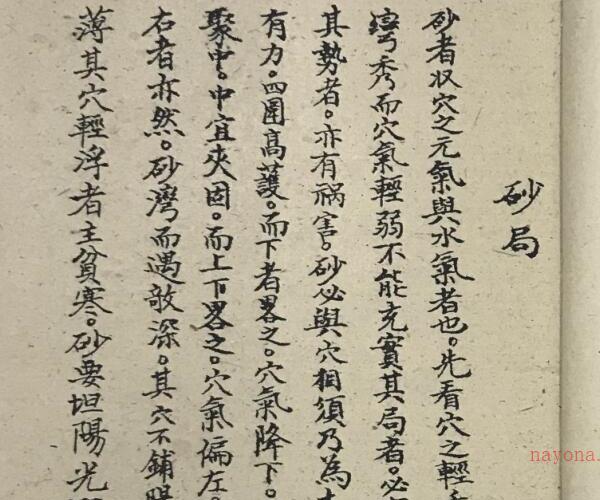 砂局
砂者收穴之元氣與水氣者也。先看穴之輕
秀而穴氣輕弱不能充實其局者。必
其勢者。亦有禍害。砂必與穴相須乃為
有力。四圍高護。而下者畧之。穴氣降下。
聚中。中宜夾固。而上下畧之。穴氣偏左。
右者亦然。砂灣而遇敧深。其穴不鋪
薄其穴輕浮者主貧寒。砂要坦陽光
nayona.